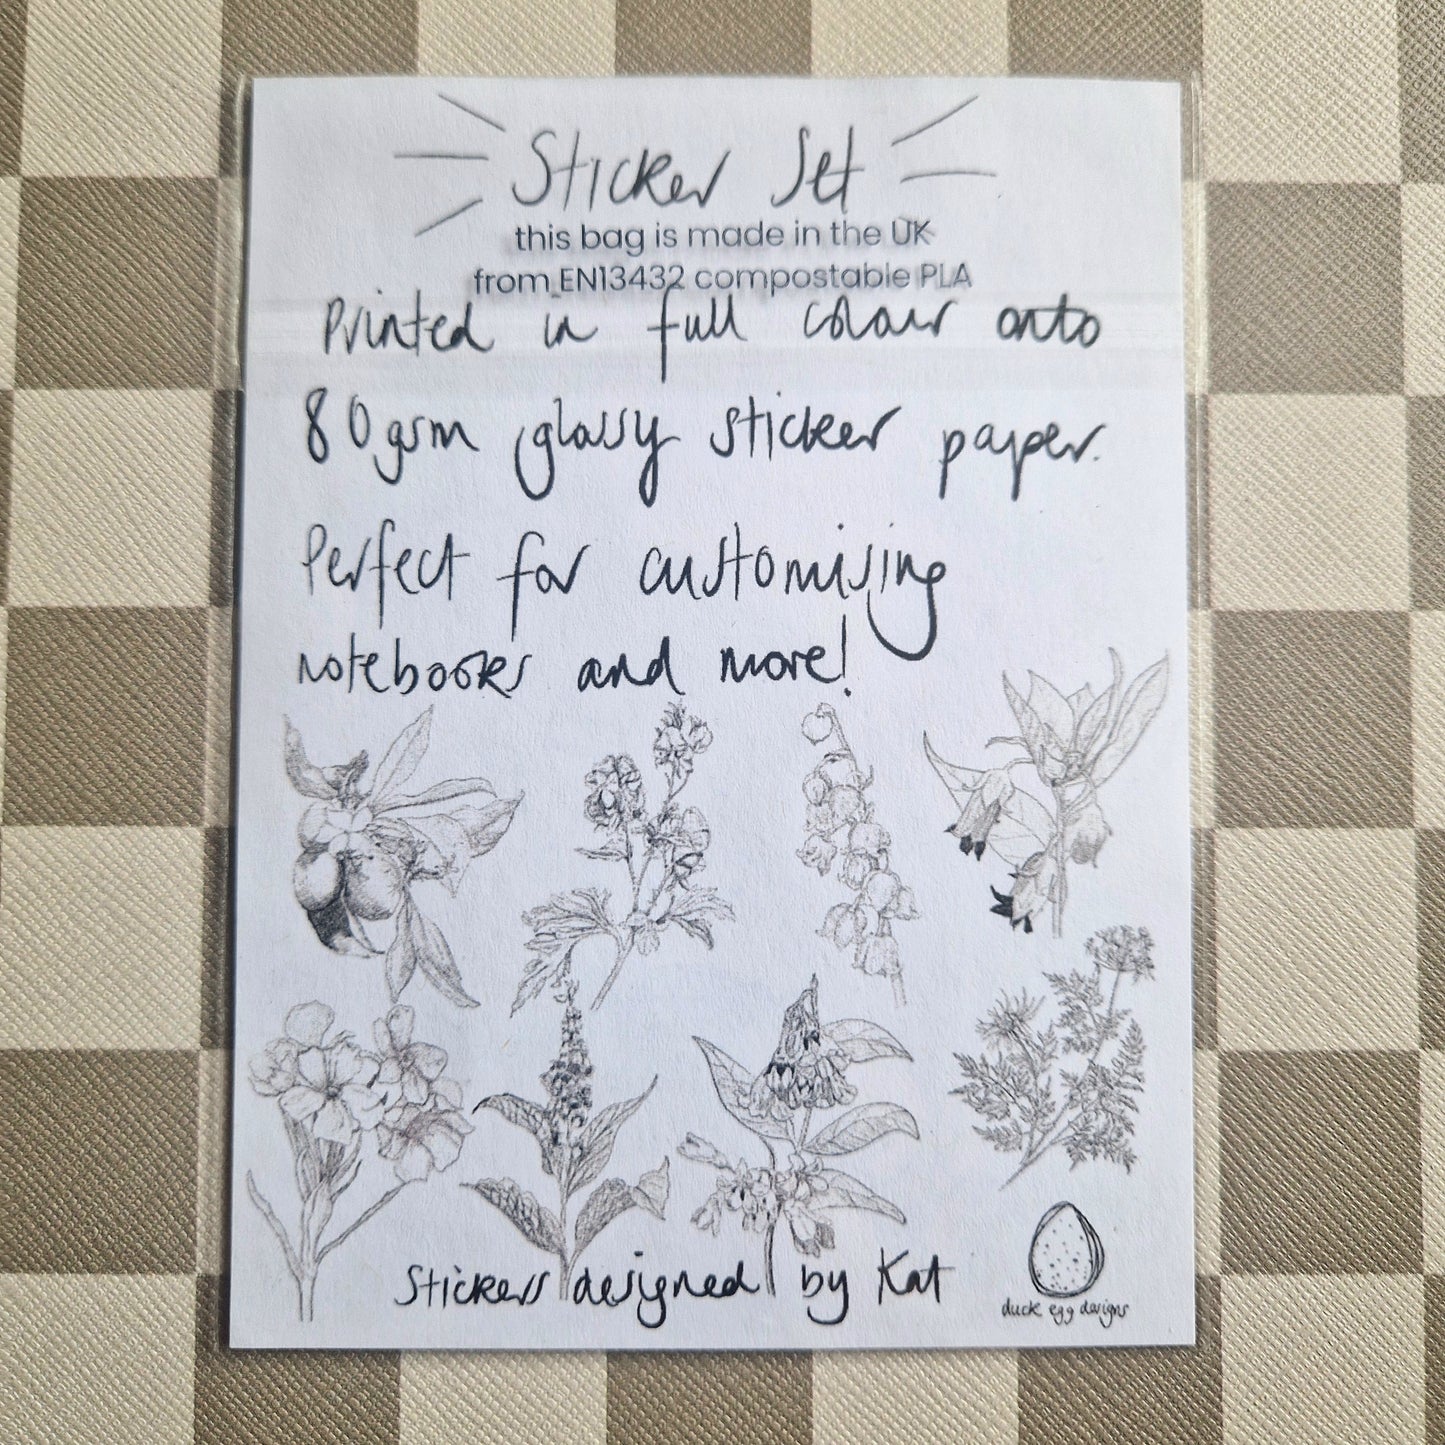 Sticker Set
this bag is made in the UK
from EN13432 compostable PLA
Printed in full colour onto
80gsm glossy sticker paper.
Perfect for customising
notebooks and more!
Stickers designed by Kat
duck egg designs